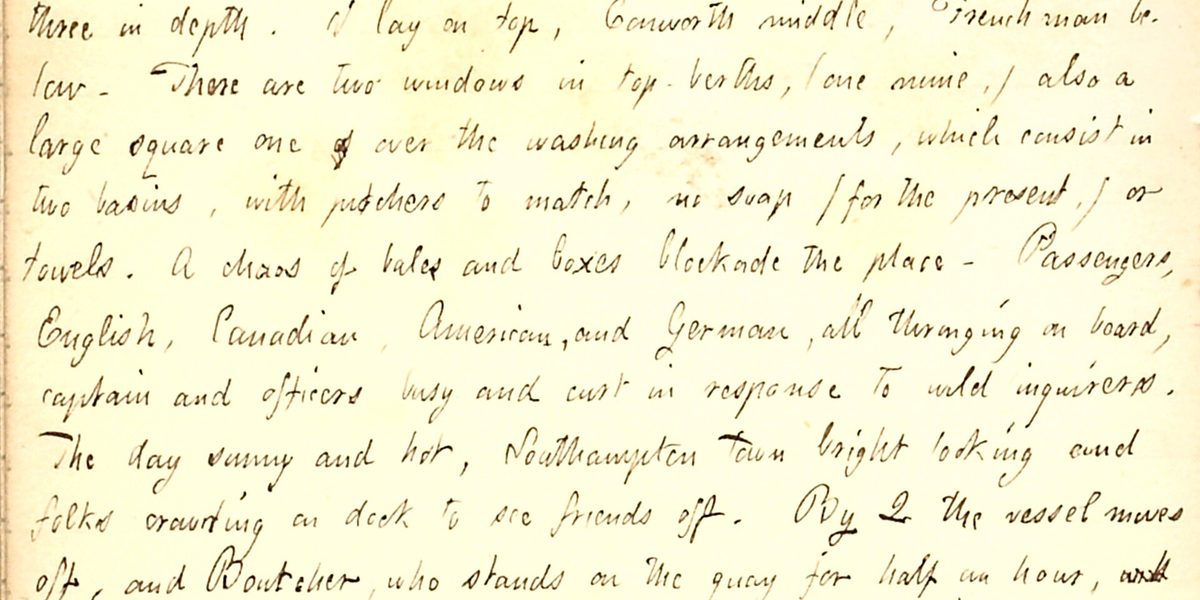 three in depth. I lay on top, Conworth middle, Frenchman be-
low - There are two windows in top-berths, (one mine,) also a
large square one over the washing arrangements, which consist in
two basins, with pitchers to match, no soap (for the present,) or
towels. A chaos of bales and boxes blockade the place - Passengers,
English, Canadian, American, and German, all thronging on board,
captain and officers busy and curt in response to wild inquirers.
The day sunny and hot, Southampton Town bright looking and
folks crowding on dock to see friends off. By 2 the vessel moves
off, and Boutcher, who stands on the quay for half an hour, with